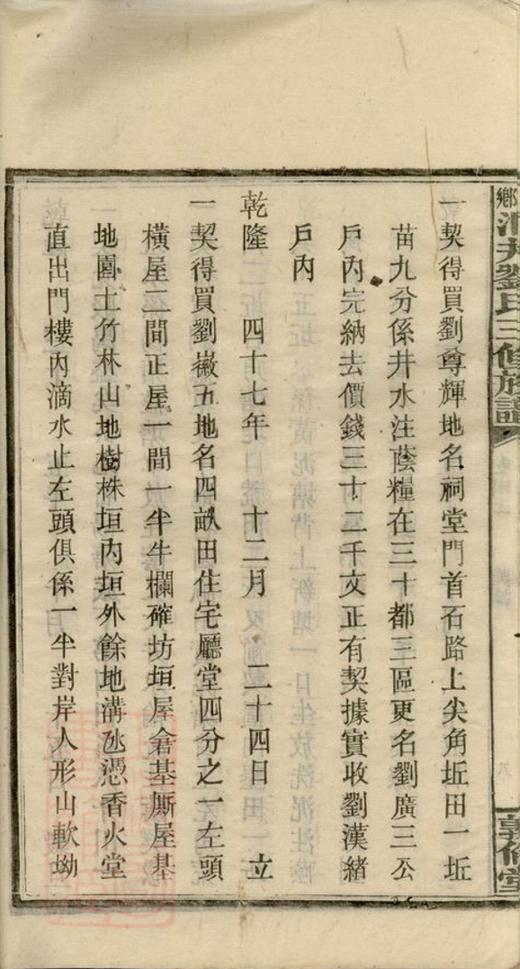 鄉洄井劉氏三修族譜
敦倫堂
一契得買劉尊輝地名祠堂門首石路上尖角坵田一坵
苗九分係井水注蔭糧在三十都三區更名劉廣三公
戶內完納去價錢三十二千文正有契據實收劉漢緒
戶內
乾隆 四十七年 十二月 二十四日 立
一契得買劉嶶五地名四畝田住宅廳堂四分之一左頭
橫屋二間正屋一間一半牛欄確坊垣屋倉基厮屋基
地園土竹林山地樹株垣內垣外餘地溝氹憑香火堂
直出門樓內滴水止左頭俱係一半對岸人形山軟坳